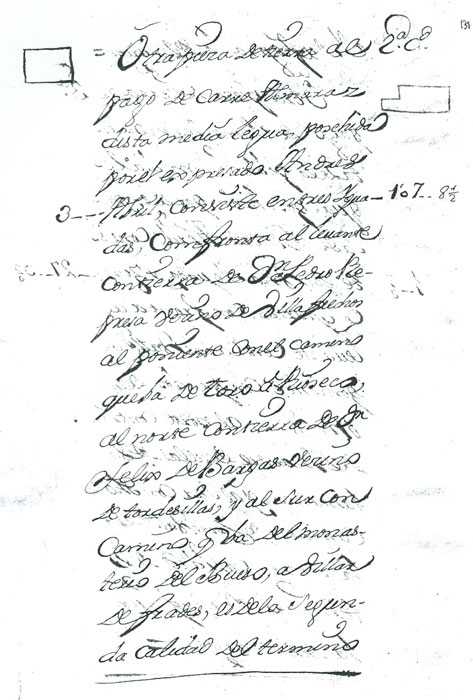 131
= Otra pieza de tierra al 2ª. Cd.
pago de Carre Almaraz
dista media legua, posehida
por el expresado Andres
3 -- Abril, Consiste en tres Igua- 1 o 7.. 8 1/2
das, Confronta al levante
con tierra de Dn. Pedro Rie-
presa vezino de Villafrechos
al poniente con el Camino
que ba de toro a Rioseco,
al norte con tierra de Dn
Felix de Bargas vezino
de tordesillas, y al sur con
Camino q ba del monas-
terio del Bueso, a Villar
de frades, es de la Segun-
da Calidad del termino